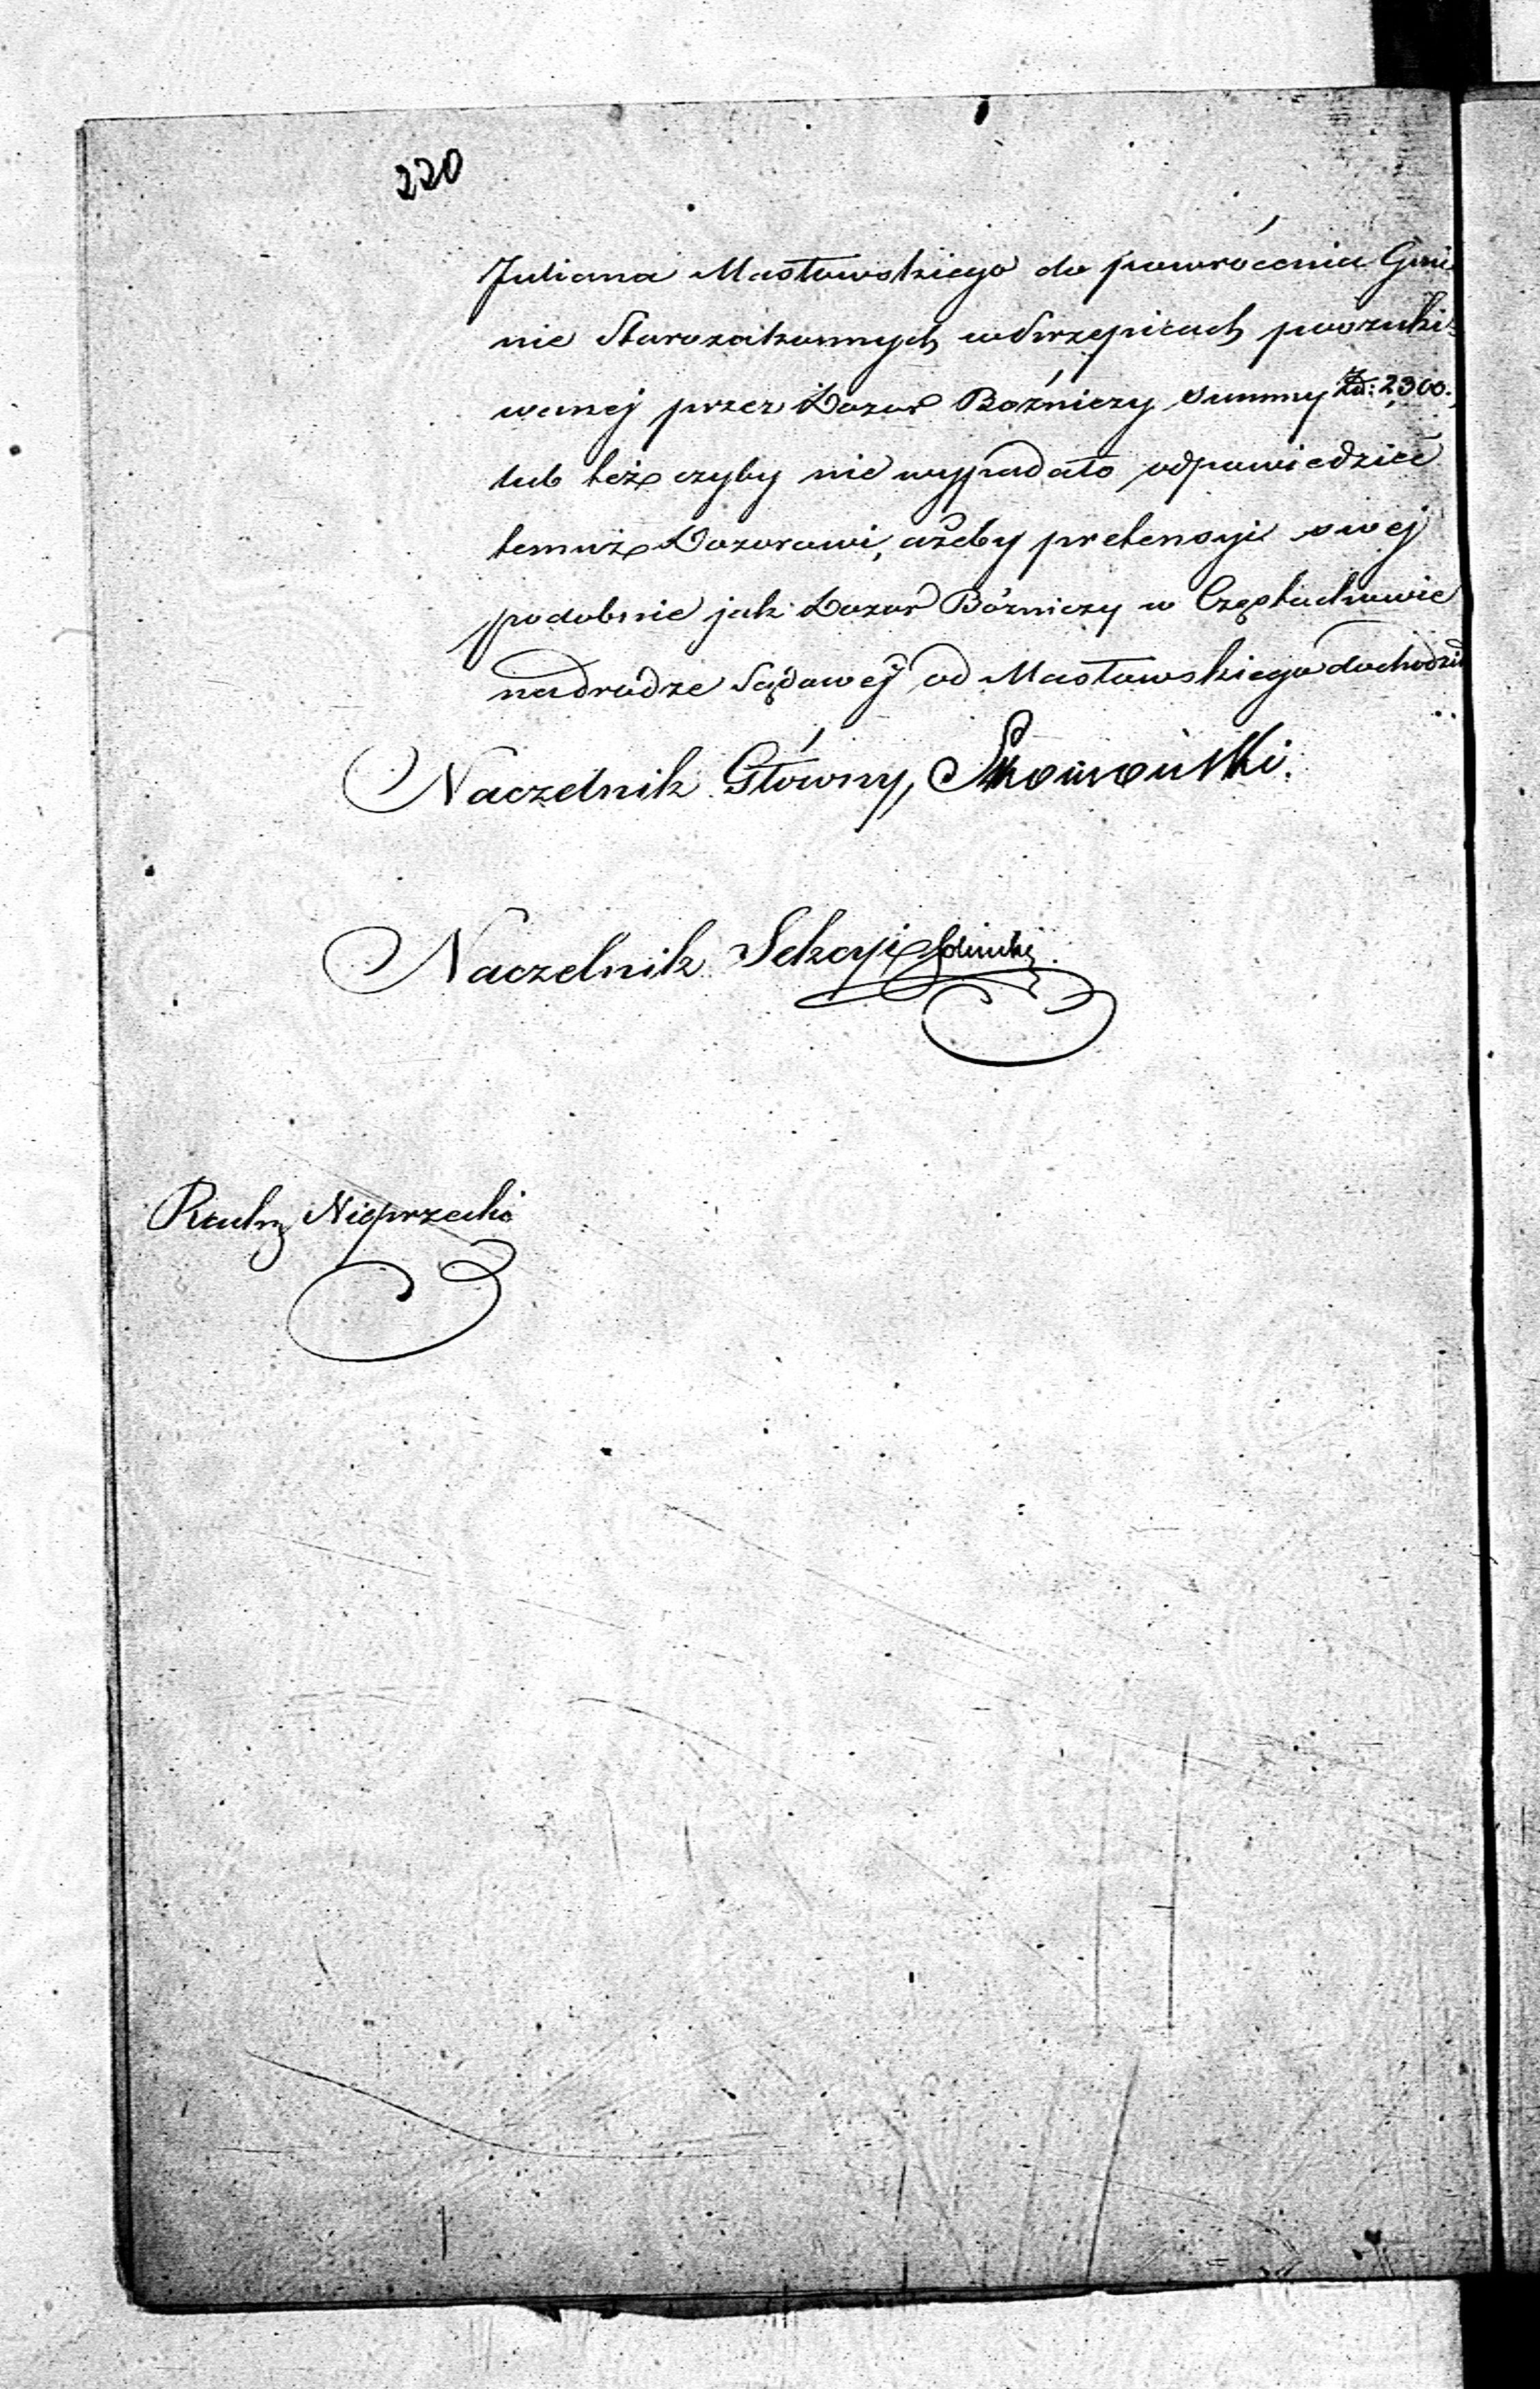 220
Juliana Masłowskiego do powrócenia Gmi
nie Starozakonnych w Krzepicach poszuki=
wanej przez Dozor Bożniczy Summy Zł: 2,300.
lub też czyby nie wypadało odpowiedzieć
temuż Dozorowi, ażeby pretensyi swej
podobnie jak Dozor Bóżniczy w Częstochowie
na drodze Sądowej od Masłowskiego dochodził
Naczelnik Główny,
Naczelnik Sekcyi